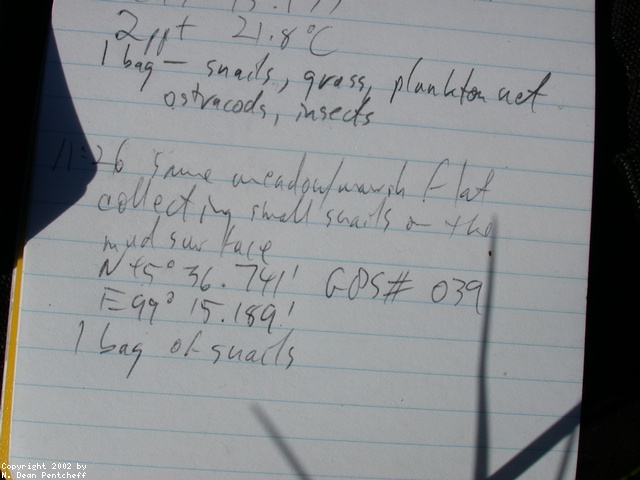 2ppt 21.8°C
1 bag — snails, grass, plankton net
ostracods, insects
11:26 same meadow/marsh flat
collecting small snails on the
mud surface
N 45° 36.741' GPS# 039
E 99° 15.189'
1 bag of snails
Copyright 2002 by
N. Dean Pentcheff